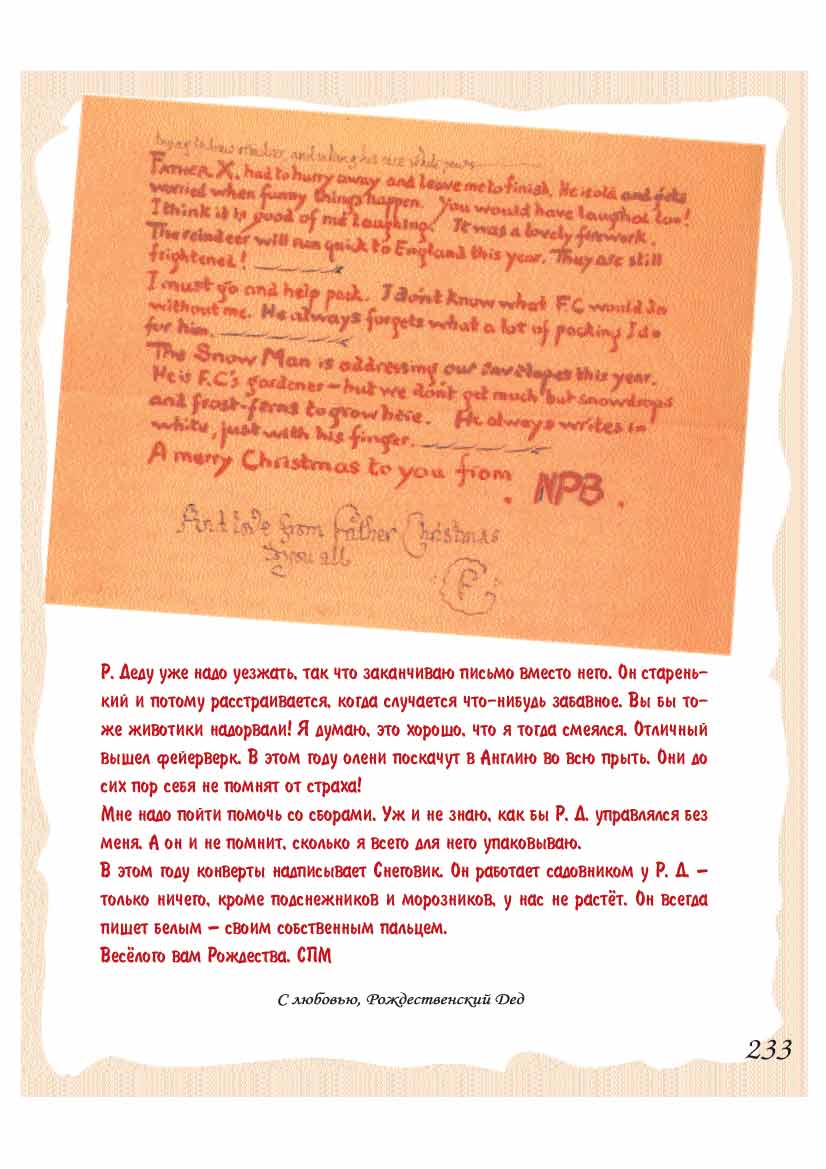 trying to draw                and                          while yours
FATHER X. had to hurry away and leave me to finish. He is old and gets
worried when funny things happen. You would have laughed too!
I think it is good of me laughing. It was a lovely firework.
The reindeer will run quick to England this year. They are still
frightened!
I must go and help pack. I don't know what F.C would do
without me. He always forgets what a lot of packing I do
for him.
The Snow Man is addressing our envelopes this year.
He is F.C's gardener – but we don't get much but snowdrops
and frost-ferns to grow here. He always writes in
white, just with his finger.
A merry Christmas to you from NPB.
And love from Father Christmas
to you all
FC
Р. Деду уже надо уезжать, так что заканчиваю письмо вместо него. Он старень-
кий и потому расстраивается, когда случается что-нибудь забавное. Вы бы то-
же животики надорвали! Я думаю, это хорошо, что я тогда смеялся. Отличный
вышел фейерверк. В этом году олени поскачут в Англию во всю прыть. Они до
сих пор себя не помнят от страха!
Мне надо пойти помочь со сборами. Уж и не знаю, как бы Р. Д. управлялся без
меня. А он и не помнит, сколько я всего для него упаковываю.
В этом году конверты надписывает Снеговик. Он работает садовником у Р. Д. –
только ничего, кроме подснежников и морозников, у нас не растёт. Он всегда
пишет белым – своим собственным пальцем.
Весёлого вам Рождества. СПМ
С любовью, Рождественский Дед
233